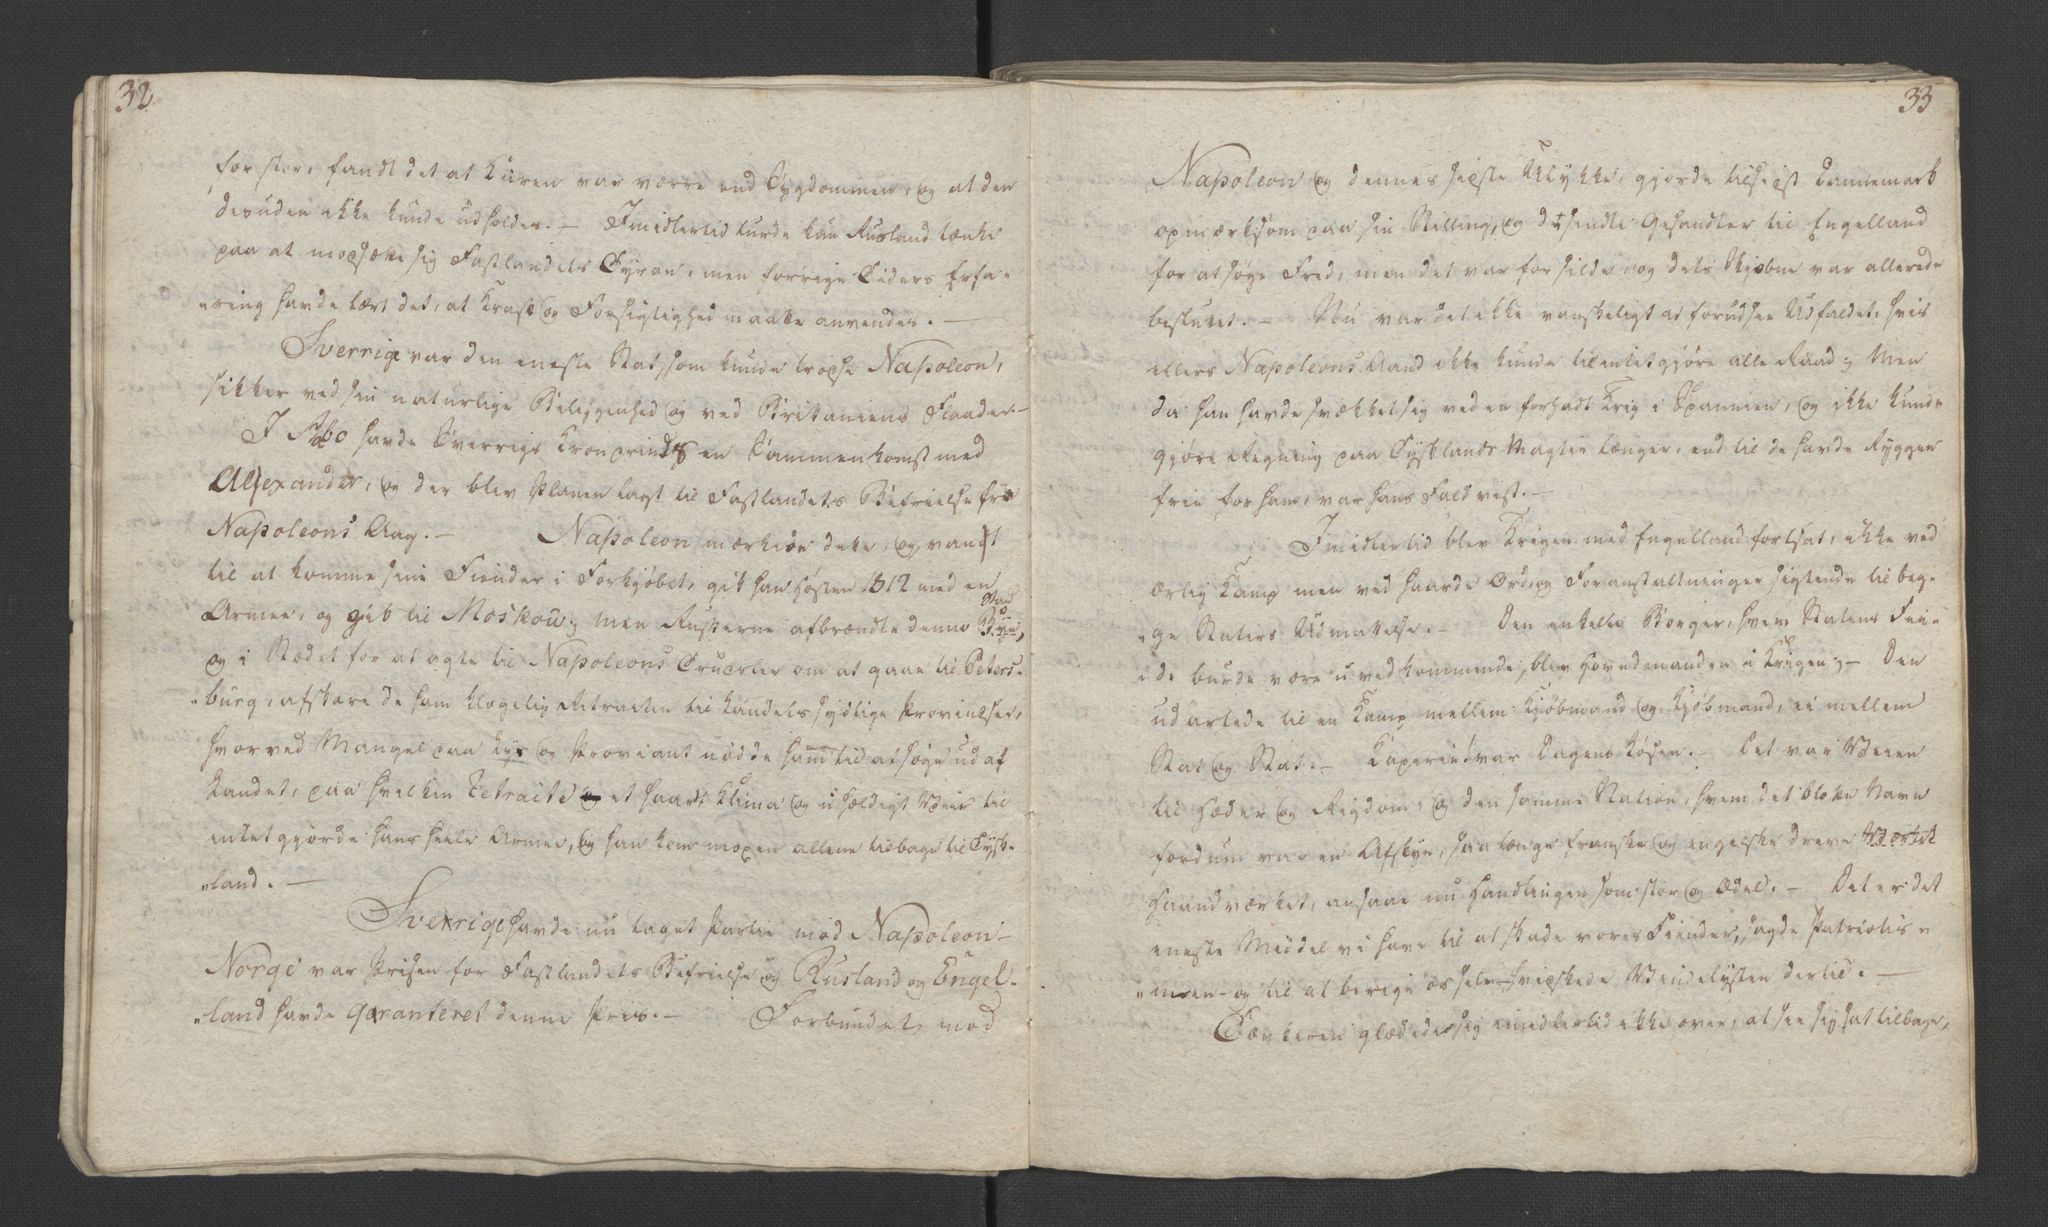 32
for stor, fandt det at Kuren var værre end Sygdommen, og at den
desuden ikke kunde udholdes. — Imidlertid turde kun Rusland tænke
paa at modsætte sig Fastlandets Tyran, men forrige Tiders Erfa-
"ring havde lært det, at Kraft og Forsigtighed maatte anvendes. —
Sverrige var den eneste Stat, som kunde trodse Napoleon,
sikker ved sin naturlige Beliggenhed og ved Britaniens Flaader. —
I Åbo havde Sverrigs Kronprinds en Sammenkomst med
Alexander, og der blev Planen lagt til Fastlandets Befrielse fra
Napoleons Aag. — Napoleon mærkede dette, og vandt
til at komme sine Fiender i Forkjøbet, gik han Høsten 1812 med en
Armee, og gik til Moskou; men Russerne afbrændte denne Stad
Bye,
og i Stædet for at agte til Napoleons Trudsler om at gaae til Peters-
"burg, afskare de ham klogelig Retraiten til Landets sydlige Provindser,
hvorved Mangel paa Lys og Proviant nødde ham til at søge ud af
Landet, paa hvilken Retraite et haardt Klima og uheldigt Veir til
intetgjorde hans heele Armee, og han kom næsten allene tilbage til Tysk-
"land. —
Sverrige havde nu taget Partie mod Napoleon —
Norge var Prisen for Fastlandets Befrielse og Rusland og Engel-
"land havde garanteret denne Priis. — Forbundet mod
33
Napoleon og dennes sidste Ulykke, gjorde tilsidst Dannemark
opmærksom paa sin Stilling, og d+ sendte Gesandter til Engelland
for at søge Fred, men det var for silde, og dets Skjebne var allerede
besluttet. — Nu var det ikke vanskeligt at forudsee Udfaldet, hvis
ellers Napoleons Aand ikke kunde tilintetgjøre alle Raad; Men
da han havde svækket sig ved en forhadt Krig i Spannien, og ikke kunde
gjøre Regning paa Tysklands Magter længer, end til de havde Ryggen
frie for ham, var hans Fald vist. —
Imidlertid blev Krigen med Engelland fortsat, ikke ved
ærlig Kamp men ved haarde Ord, og Foranstaltninger sigtende til beg-
"ge Staters Udmattelse. — Den enkelte Borger, hvem Statens Fei-
"de burde være uvedkommende, blev Hovedmanden i Krigen; — Den
udartede til en Kamp mellem Kjøbmand og Kjøbmand, ei mellem
Stat og Stat. — Kaperie var Dagens Løsen. — Det var Veien
til Hæder og Rigdom, og den samme Nation, hvem det blotte Navn
fordum var en Afskye, saa længe franske og engelske dreve
Haandværket, ansaae nu Handlingen som stor og ædel. — Det er det
eneste Middel vi have til at skade vores Fiender, sagde Patriotis-
"men — og til at berige os selv — hvidskede Vindelysten dertil. —
Tænkeren glædede sig imidlertid ikke over, at see sig sat tilbage,